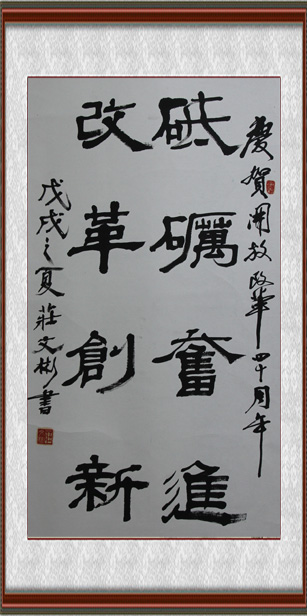 慶賀開放改革四十周年
砥礪奮進
改革創新
戊戌之夏莊文彬書